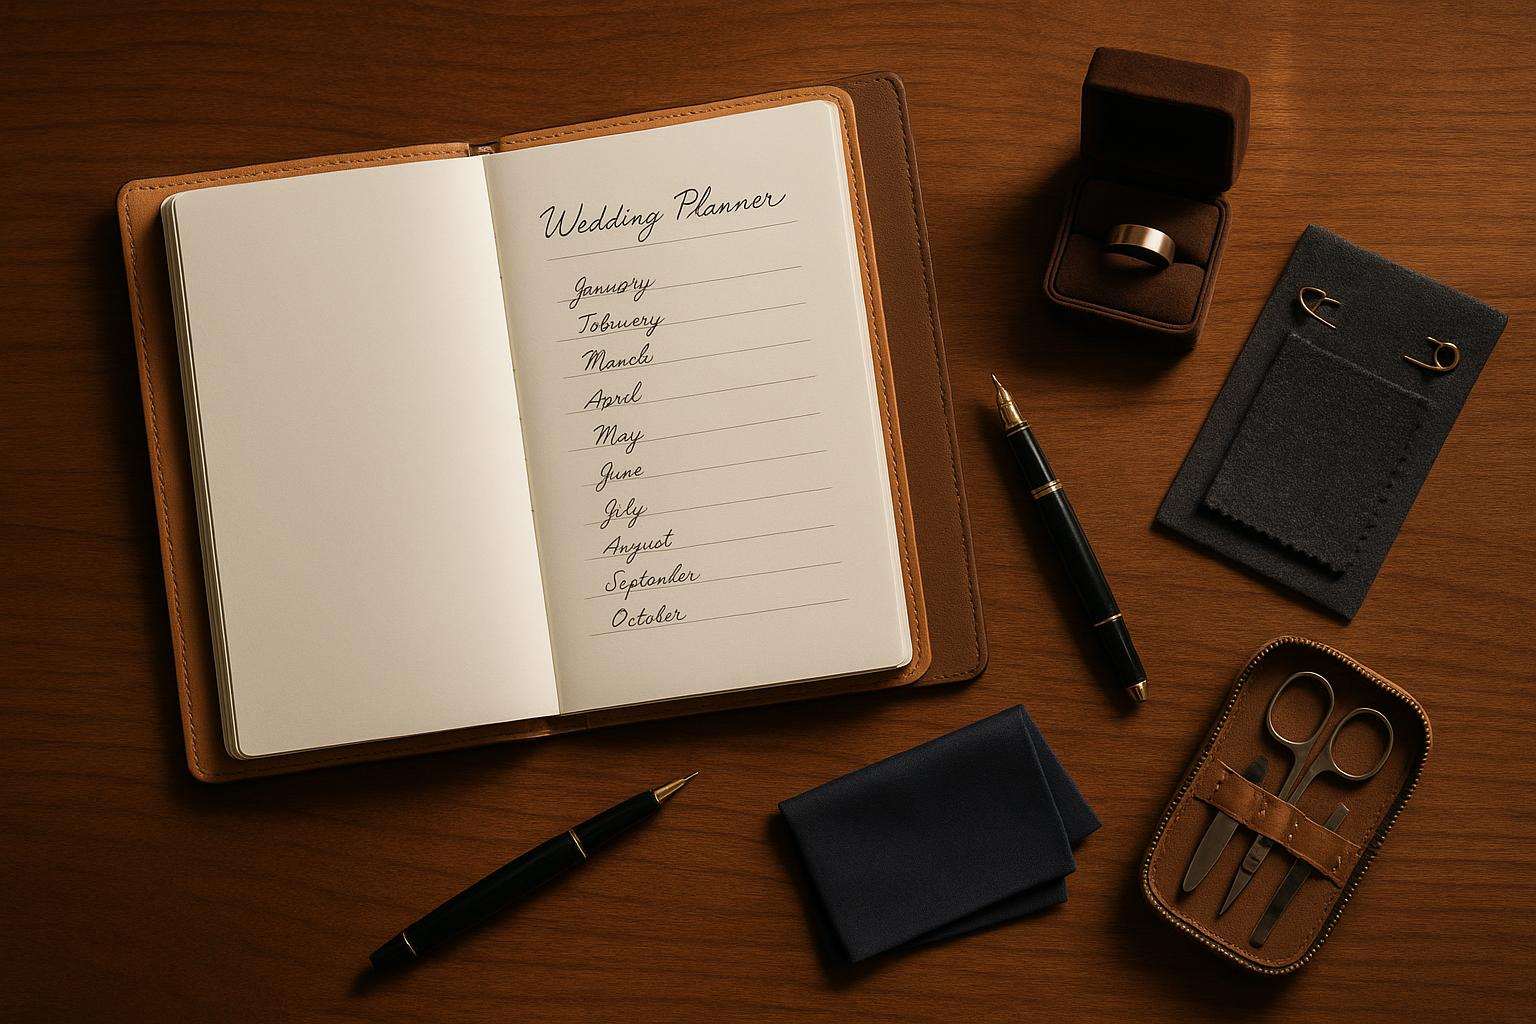 Wedding Planner
January
Tobruery
March
April
May
June
Jily
Anyuot
Septonher
October